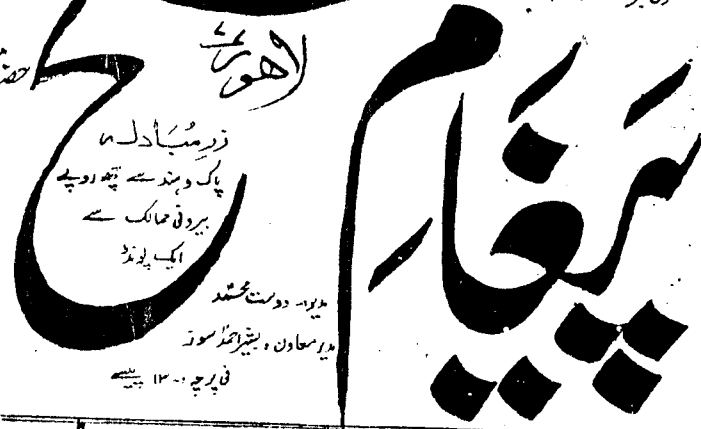 پیغامِ
لاہور
زرِ مُبَادلہ
پاک و ہند سے چھ روپے
بیرونی ممالک سے
ایک پونڈ
مدیر۔ دوست محمد
مدیر معاون ۔ بشیر احمد سوز
فی پرچہ ۔ ۱۳ پیسے